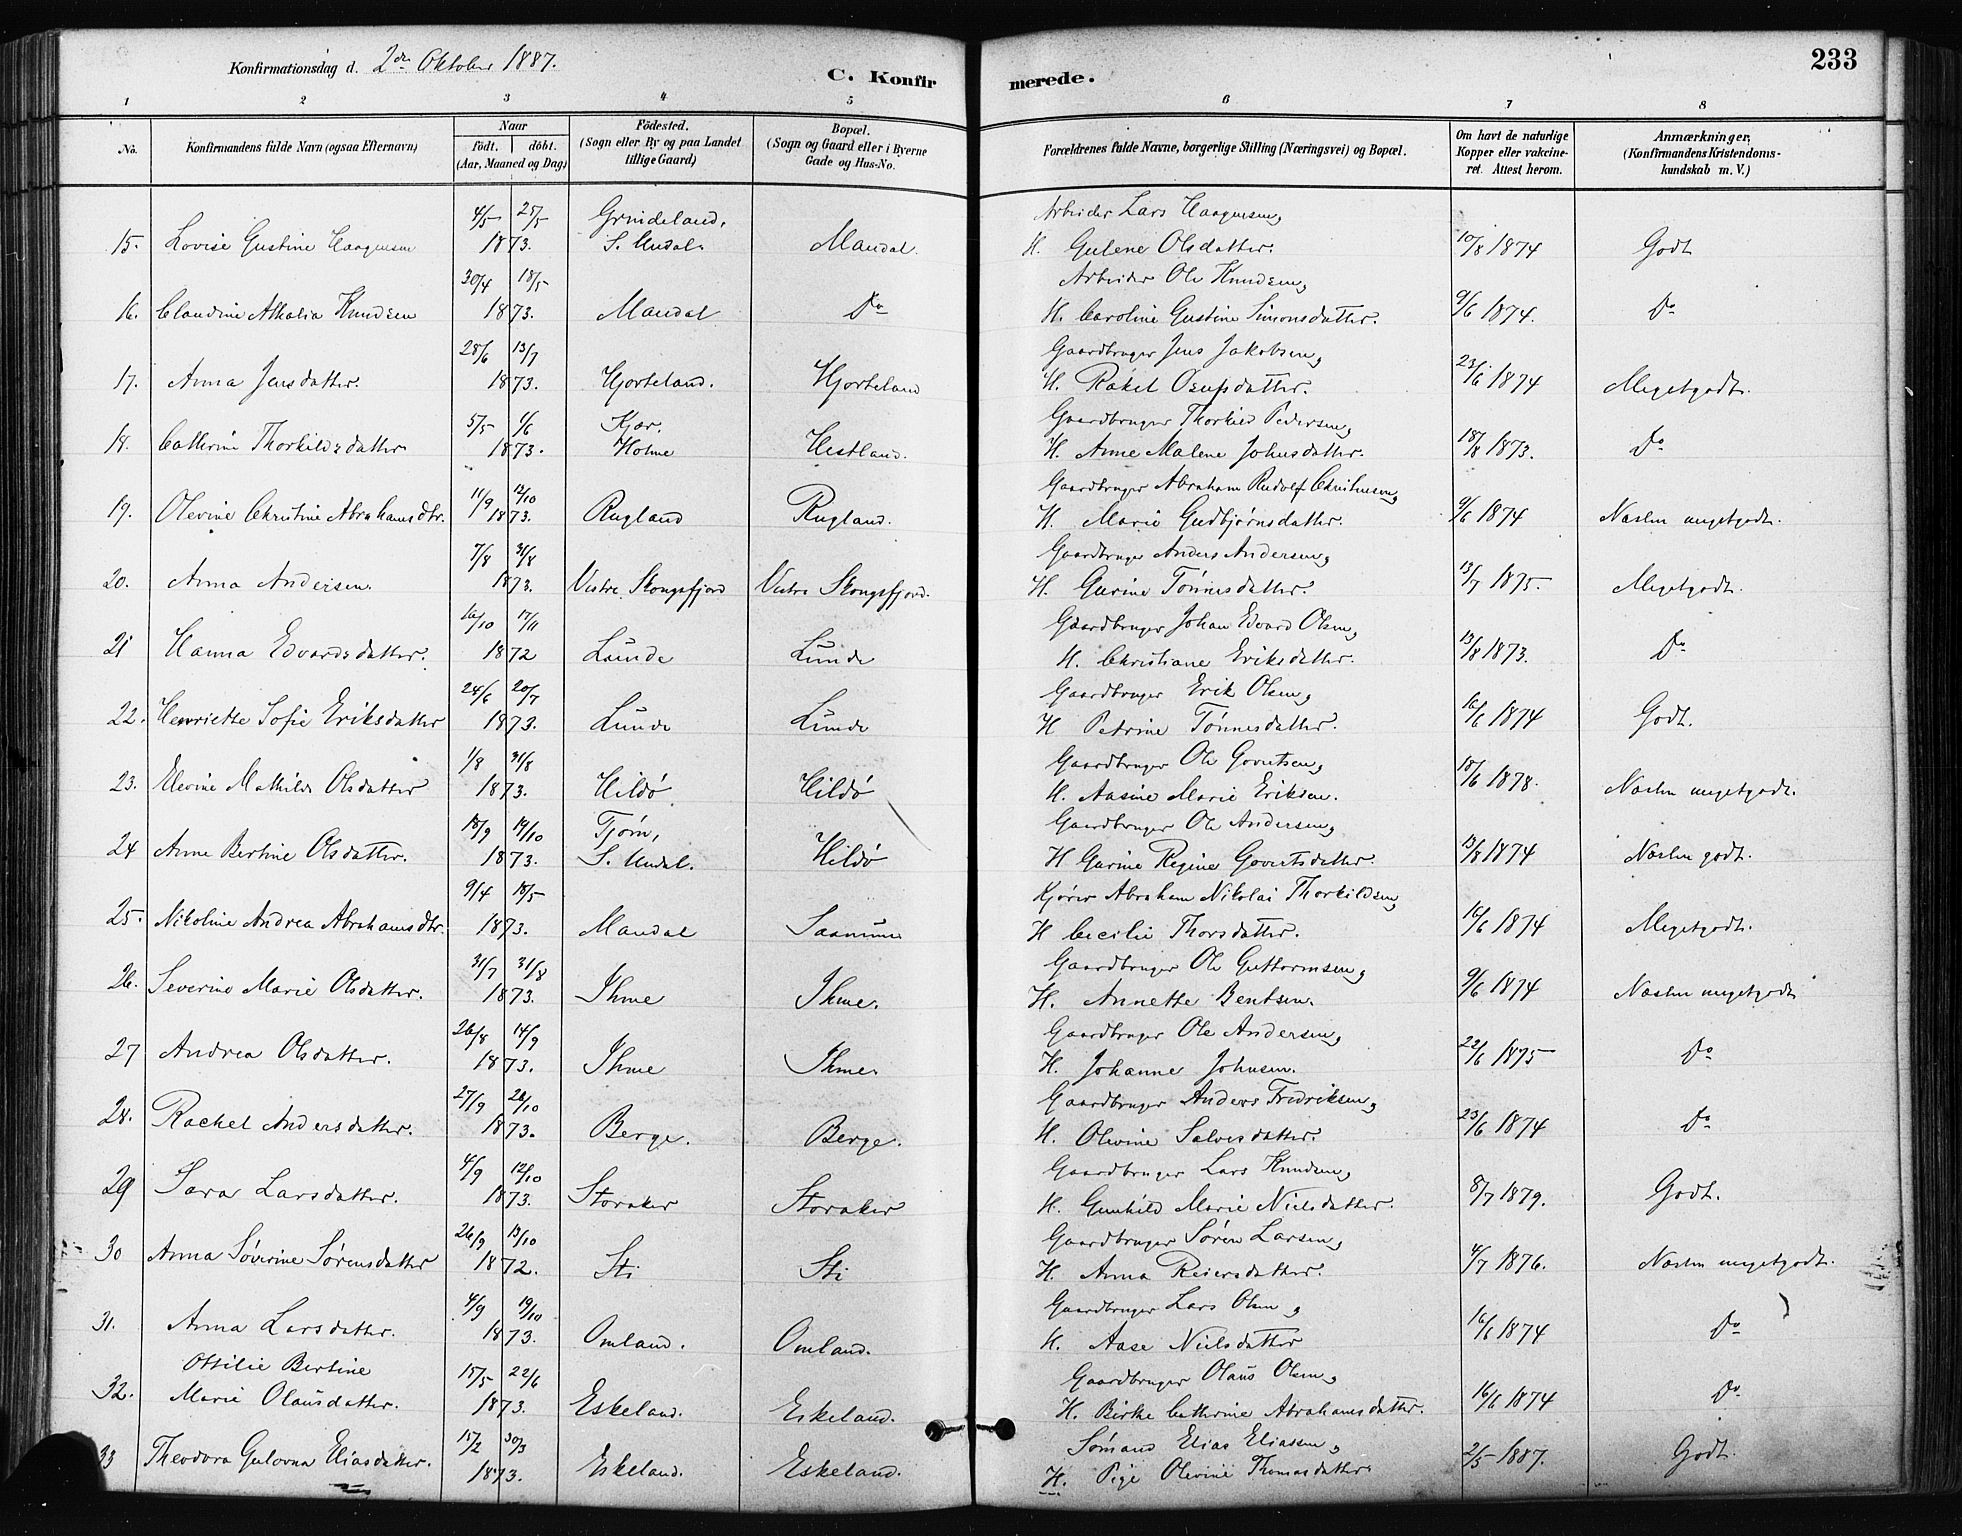 Konfirmationsdag d. 2den Oktober 1887.
C. Konfirmerede.
233
1 2 3 4 5 6 7 8
No. Konfirmandens fulde Navn (ogsaa Efternavn) Naar födt. döbt. (Aar, Maaned og Dag) Födested. (Sogn eller By og paa Landet tillige Gaard) Bopæl. (Sogn og Gaard eller i Byerne Gade og Hus-No. Forældrenes fulde Navne, borgerlige Stilling (Næringsvei) og Bopæl. Om havt de naturlige Kopper eller vakcineret. Attest herom. Anmærkninger, (Konfirmandens Kristendomskundskab m. V.)
4/5 25/5 Grindeland, Arbeider Lars Haagensen,
15. Lovise Gustine Haagensen 1873. S. Undal. Mandal. H. Gulene Olsdatter. 10/8 1874 Godt
30/4 18/5 Arbeider Ole Knudsen,
16. Claudine Athalia Knudsen 1873. Mandal Do H. Caroline Gustine Simonsdatter. 9/6 1874. Do
28/6 13/7 Gaardbruger Jens Jakobsen,
17. Anna Jensdatter. 1873. Hjorteland. Hjorteland H. Rakel Osufsdatter. 23/6 1874 Megetgodt.
5/5 1/6 Kjær. Gaardbruger Thorkild Pedersen,
18. Cathrine Thorkildsdatter 1873. Holme Hestland. H. Anne Malene Johnsdatter. 18/8 1873. Do
11/9 12/10 Gaardbruger Abraham Rudolf Christensen,
19. Olevine Christine Abrahamsdtr. 1873. Rugland Rugland. H. Marie Gudbjørnsdatter. 9/6 1874 Næsten megetgodt.
7/8 31/8 Gaardbruger Anders Andersen,
20. Anna Andersen. 1873. Vestre Skongsfjord Vestre Skongsfjord. H. Gurine Tønnesdatter. 13/7 1875. Megetgodt.
16/10 17/11 Gaardbruger Johan Edvard Olsen,
21 Hanna Edvardsdatter. 1872 Lunde Lunde H. Christiane Eriksdatter. 13/8 1873. Do
24/6 20/7 Gaardbruger Erik Olsen,
22. Henriette Sofie Eriksdatter 1873. Lunde Lunde H Petrine Tønnesdatter. 16/6 1874 Godt.
1/8 31/8 Gaardbruger Ole Govertsen,
23. Elevine Mathilde Olsdatter 1873. Hildø Hildø H. Aasine Marie Eriksen. 18/6 1878. Næsten megetgodt.
18/9 19/10 Tjørn, Gaardbruger Ole Andersen,
24 Anne Bertine Olsdatter. 1873. S. Undal. Hildø H Gurine Regine Govertsdatter. 13/8 1874 Næsten godt.
9/4 18/5 Kjører Abraham Nikolai Thorkildsen,
25. Nikoline Andrea Abrahamsdtr. 1873. Mandal Saanum H Cecilie Thorsdatter. 16/6 1874 Megetgodt.
31/7 31/8 Gaardbruger Ole Guttormsen,
26. Severine Marie Olsdatter. 1873. Ihme Ihme. H. Annette Bentsen. 9/6 1874 Næsten megetgodt
26/8 14/9 Gaardbruger Ole Andersen,
27 Andrea Olsdatter. 1873. Ihme Ihme. H. Johanne Johnsen. 22/6 1875 Do
27/9 26/10 Gaardbruger Anders Fredriksen,
28. Rachel Andersdatter. 1873. Berge. Berge. H. Olevine Salvesdatter. 23/6 1874 Do
4/9 12/10 Gaardbruger Lars Knudsen,
29 Sara Larsdatter. 1873. Storaker Storaker H. Gunhild Marie Nielsdatter. 8/7 1879. Godt.
26/9 13/10 Gaardbruger Søren Larsen,
30 Anna Søverine Sørensdatter 1872. Sti Sti H. Anna Reiersdatter. 4/7 1876. Næsten megetgodt.
4/9 19/10 Gaardbruger Lars Olsen,
31. Anna Larsdatter. 1873. Omland. Omland. H. Aase Nielsdatter 16/6 1874 Do
Ottilie Bertine 15/5 22/6 Gaardbruger Olaus Olsen,
32. Marie Olausdatter. 1873. Eskeland. Eskeland. H. Birte Cathrine Abrahamsdatter. 16/6 1874 Do
15/2 30/3 Sømand Elias Eliassen,
33 Theodora Gulovna Eliasdatter. 1873. Eskeland. Eskeland. H. Pige Olevine Thomasdatter 2/5 1887. Godt.